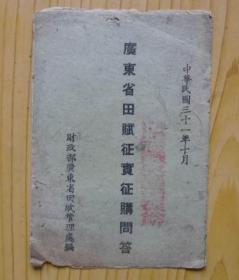 中華民國三十一年十月
廣東省田賦征實征購問答
財政部廣東省田賦管理處編